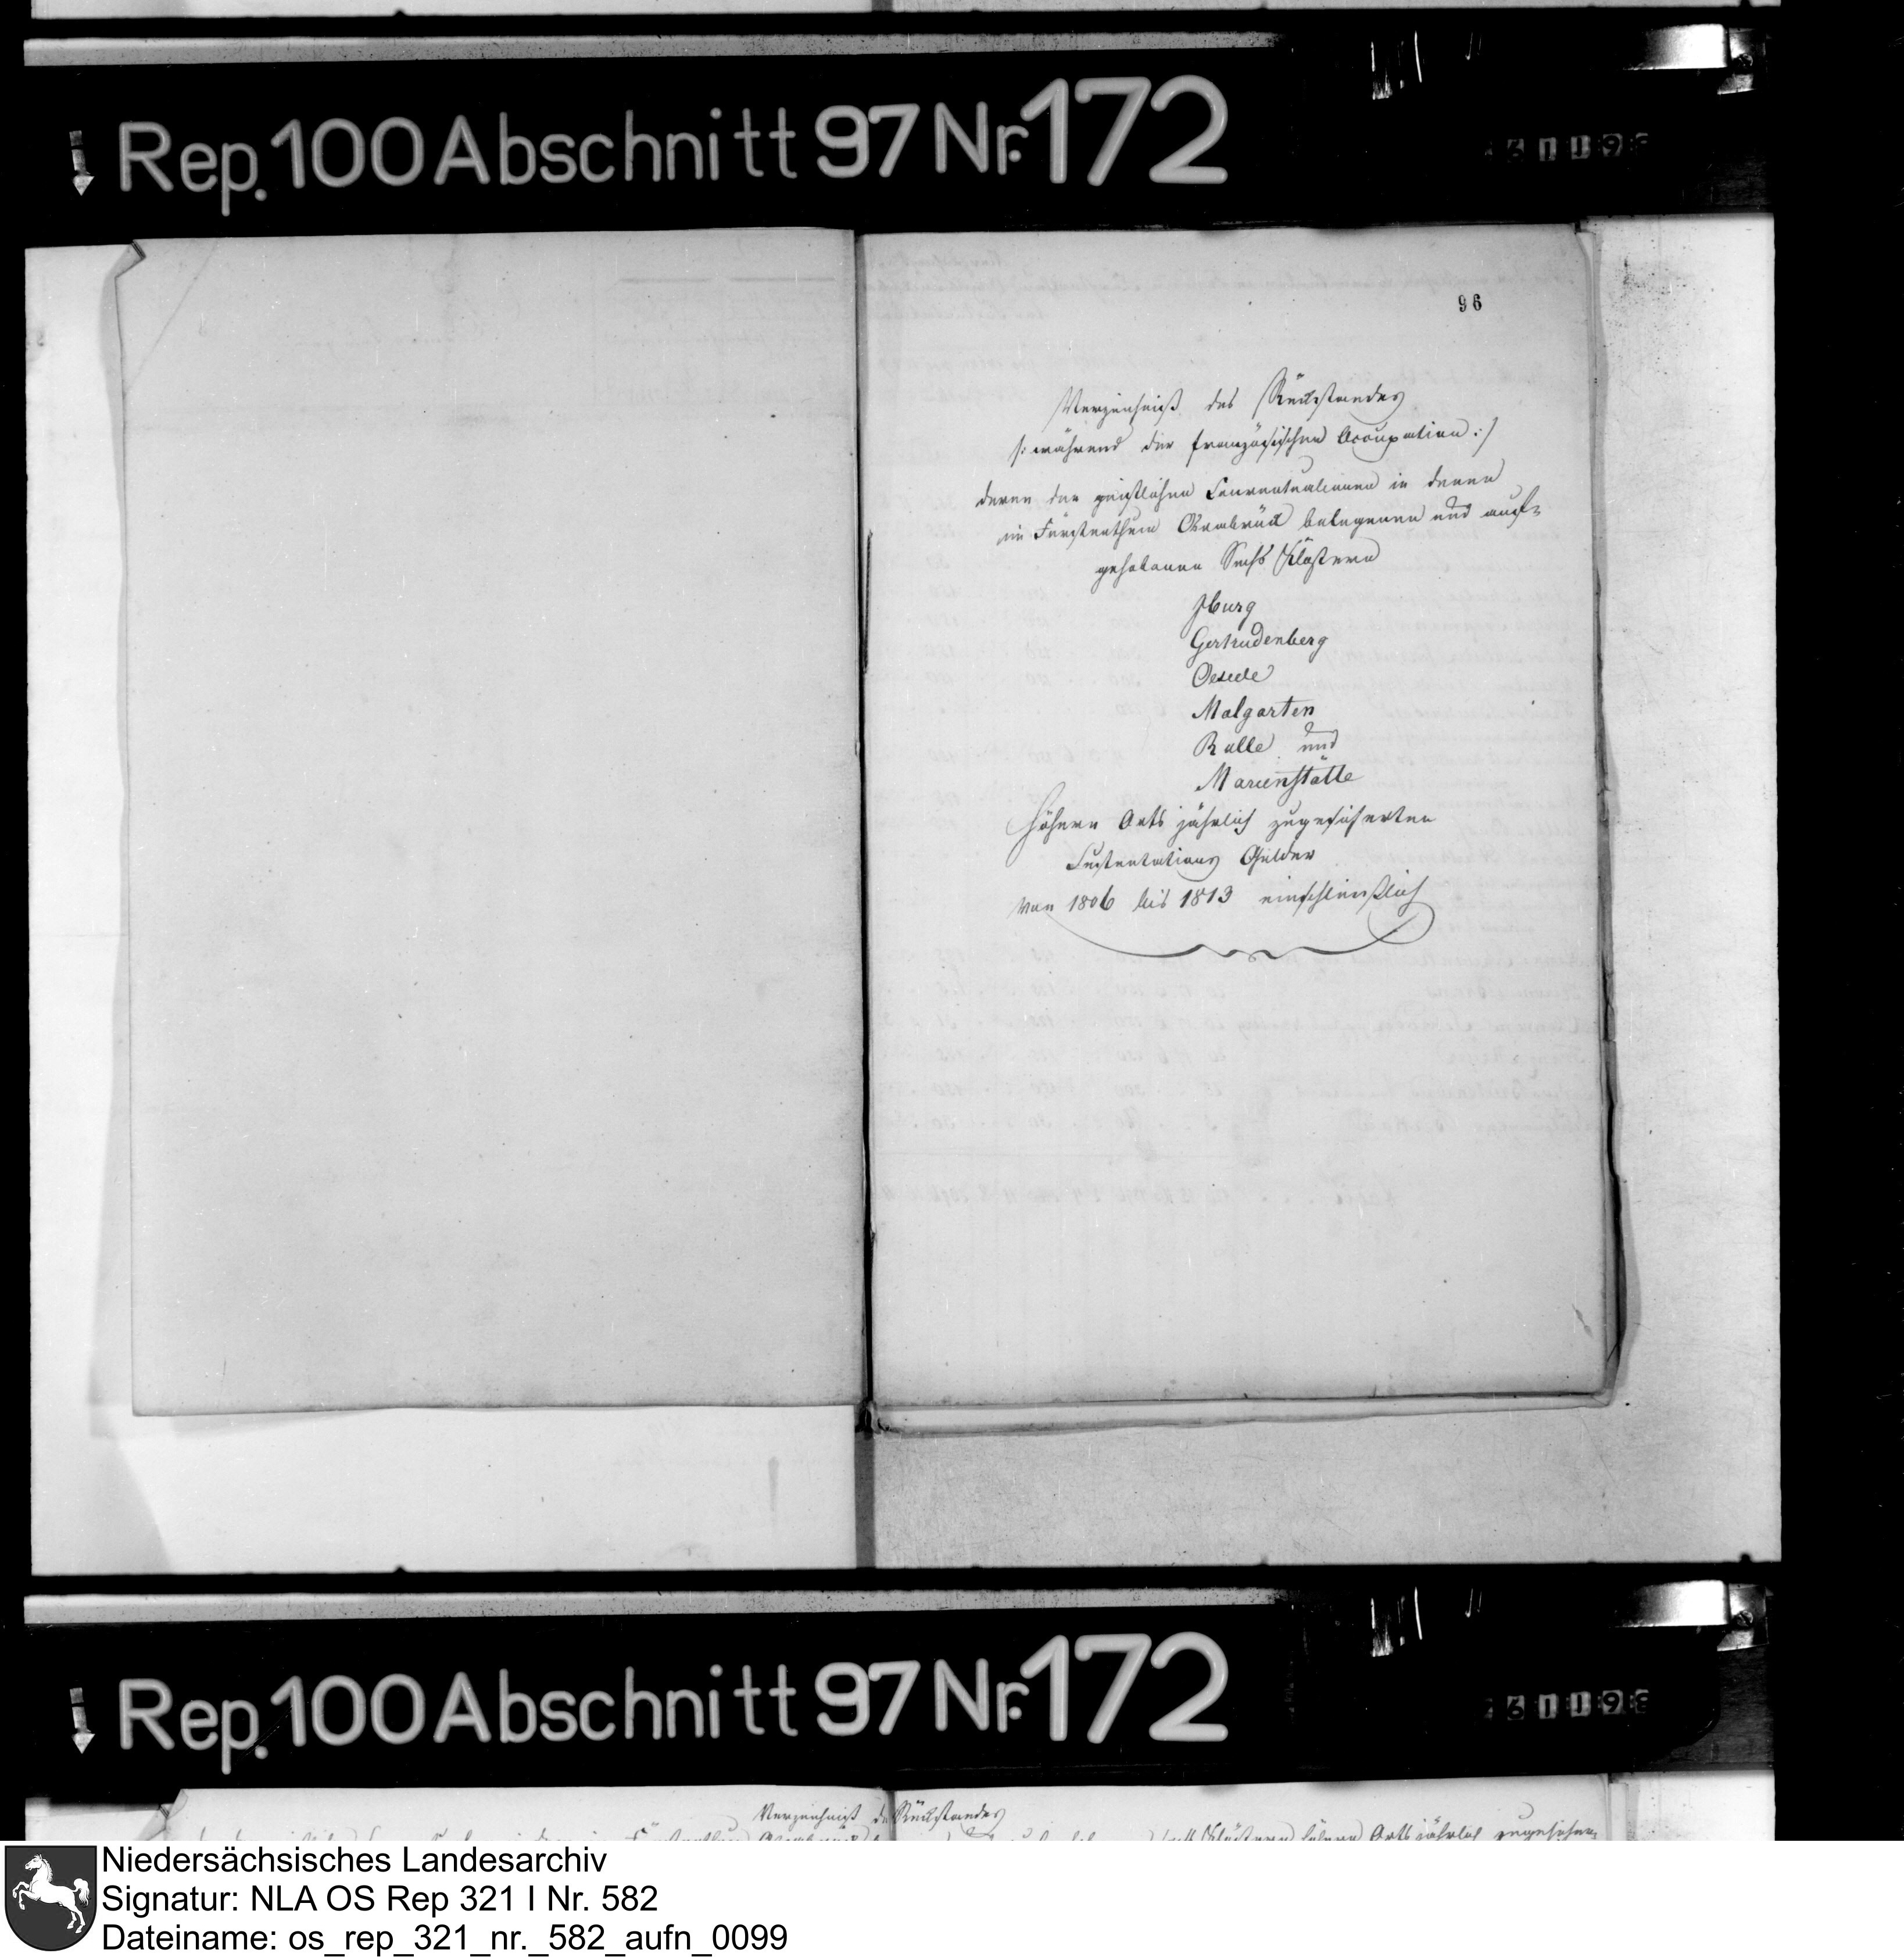 Rep. 100 Abschnitt 97 Nr. 172
96
Verzeichniß des Rückstandes
/: während der französischen Occupation :/
deren den geistlichen Conventualinnen in denen
im Fürstenthum Osnabrück belegenen und auf-
gehobenen Sechs Klöstern
Iburg
Gertrudenberg
Oesede
Malgarten
Rulle und
Marienstätte
höhern Orts jährlich zugesicherten
Sustentations Gelder
von 1806 bis 1813 einschließlich
Rep. 100 Abschnitt 97 Nr. 172
Verzeichniß des Rückstandes
Klöstern höhern Orts jährlich
Niedersächsisches Landesarchiv
Signatur: NLA OS Rep 321 I Nr. 582
Dateiname: os_rep_321_nr._582_aufn_0099